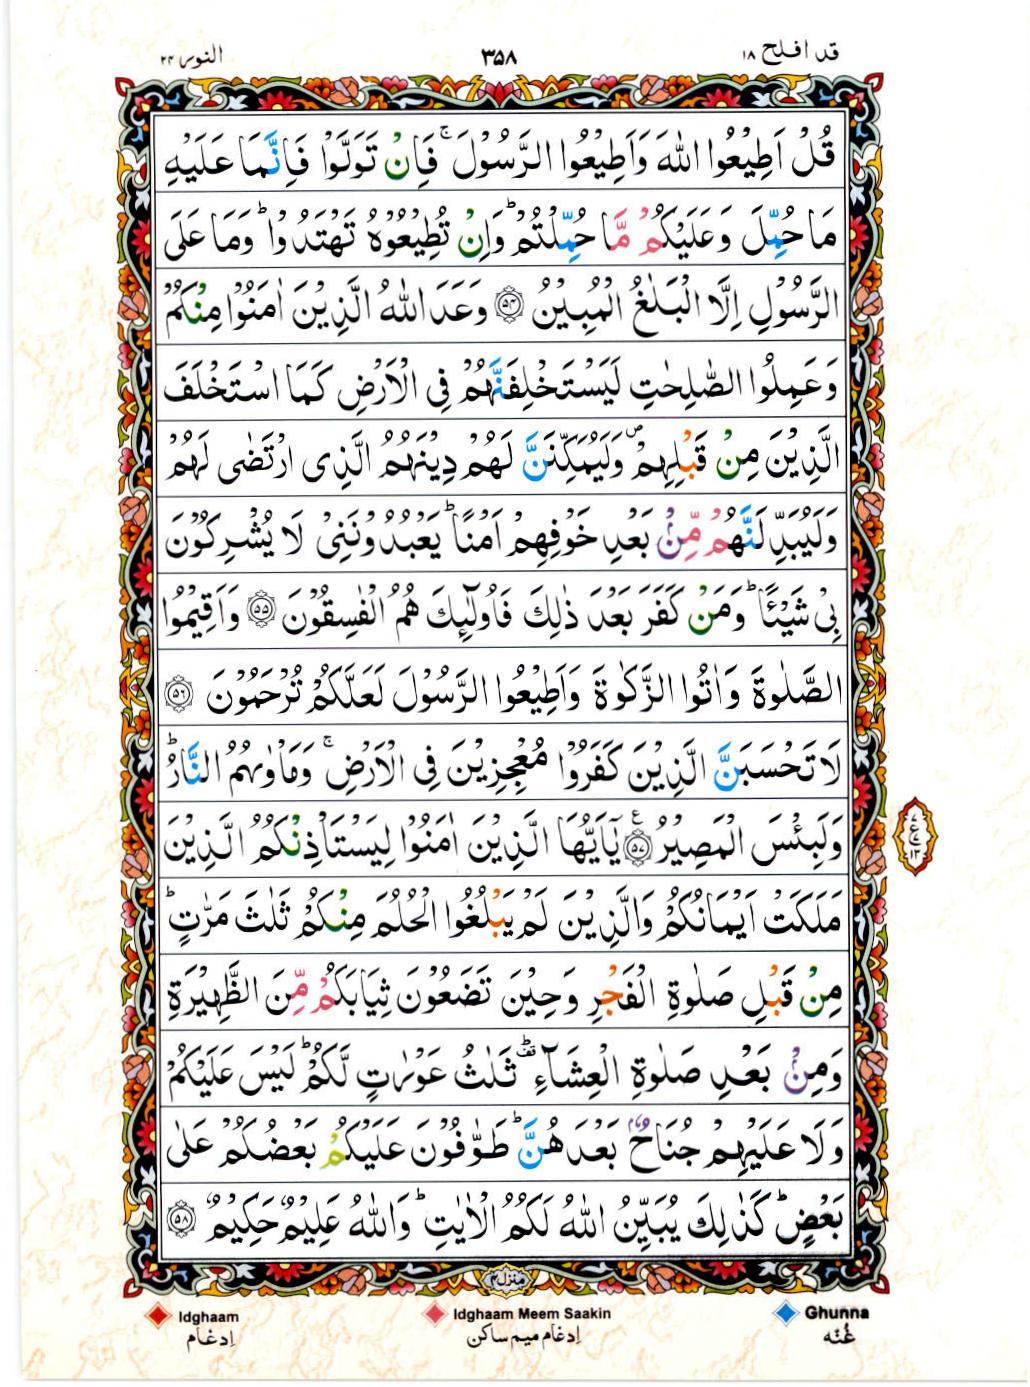 قد افلح ۱۸
۳۵۸
النور ۲۴
قُلْ اَطِيْعُوا اللّٰهَ وَاَطِيْعُوا الرَّسُوْلَ ۚ فَاِنْ تَوَلَّوْا فَاِنَّمَا عَلَيْهِ
مَا حُمِّلَ وَعَلَيْكُمْ مَّا حُمِّلْتُمْ ؕ وَاِنْ تُطِيْعُوْهُ تَهْتَدُوْا ؕ وَمَا عَلَى
الرَّسُوْلِ اِلَّا الْبَلٰغُ الْمُبِيْنُ ﴿۵۴﴾ وَعَدَ اللّٰهُ الَّذِيْنَ اٰمَنُوْا مِنْكُمْ
وَعَمِلُوا الصّٰلِحٰتِ لَيَسْتَخْلِفَنَّهُمْ فِى الْاَرْضِ كَمَا اسْتَخْلَفَ
الَّذِيْنَ مِنْ قَبْلِهِمْ ۪ وَلَيُمَكِّنَنَّ لَهُمْ دِيْنَهُمُ الَّذِى ارْتَضٰى لَهُمْ
وَلَيُبَدِّلَنَّهُمْ مِّنْۢ بَعْدِ خَوْفِهِمْ اَمْنًا ؕ يَعْبُدُوْنَنِىْ لَا يُشْرِكُوْنَ
بِىْ شَيْـًٔا ؕ وَمَنْ كَفَرَ بَعْدَ ذٰلِكَ فَاُولٰٓئِكَ هُمُ الْفٰسِقُوْنَ ﴿۵۵﴾ وَاَقِيْمُوا
الصَّلٰوةَ وَاٰتُوا الزَّكٰوةَ وَاَطِيْعُوا الرَّسُوْلَ لَعَلَّكُمْ تُرْحَمُوْنَ ﴿۵۶﴾
لَا تَحْسَبَنَّ الَّذِيْنَ كَفَرُوْا مُعْجِزِيْنَ فِى الْاَرْضِ ۚ وَمَاْوٰىهُمُ النَّارُ ؕ
وَلَبِئْسَ الْمَصِيْرُ ﴿۵۷﴾ يٰۤاَيُّهَا الَّذِيْنَ اٰمَنُوْا لِيَسْتَاْذِنْكُمُ الَّذِيْنَ
مَلَكَتْ اَيْمَانُكُمْ وَالَّذِيْنَ لَمْ يَبْلُغُوا الْحُلُمَ مِنْكُمْ ثَلٰثَ مَرّٰتٍ ؕ
مِنْ قَبْلِ صَلٰوةِ الْفَجْرِ وَحِيْنَ تَضَعُوْنَ ثِيَابَكُمْ مِّنَ الظَّهِيْرَةِ
وَمِنْۢ بَعْدِ صَلٰوةِ الْعِشَآءِ ۛ ثَلٰثُ عَوْرٰتٍ لَّكُمْ ؕ لَيْسَ عَلَيْكُمْ
وَلَا عَلَيْهِمْ جُنَاحٌۢ بَعْدَهُنَّ ؕ طَوّٰفُوْنَ عَلَيْكُمْ بَعْضُكُمْ عَلٰى
بَعْضٍ ؕ كَذٰلِكَ يُبَيِّنُ اللّٰهُ لَكُمُ الْاٰيٰتِ ؕ وَاللّٰهُ عَلِيْمٌ حَكِيْمٌ ﴿۵۸﴾
منزل ۴
Ghunna
غُنّه
Idghaam Meem Saakin
اِدغام ميم ساكن
Idghaam
اِدغام